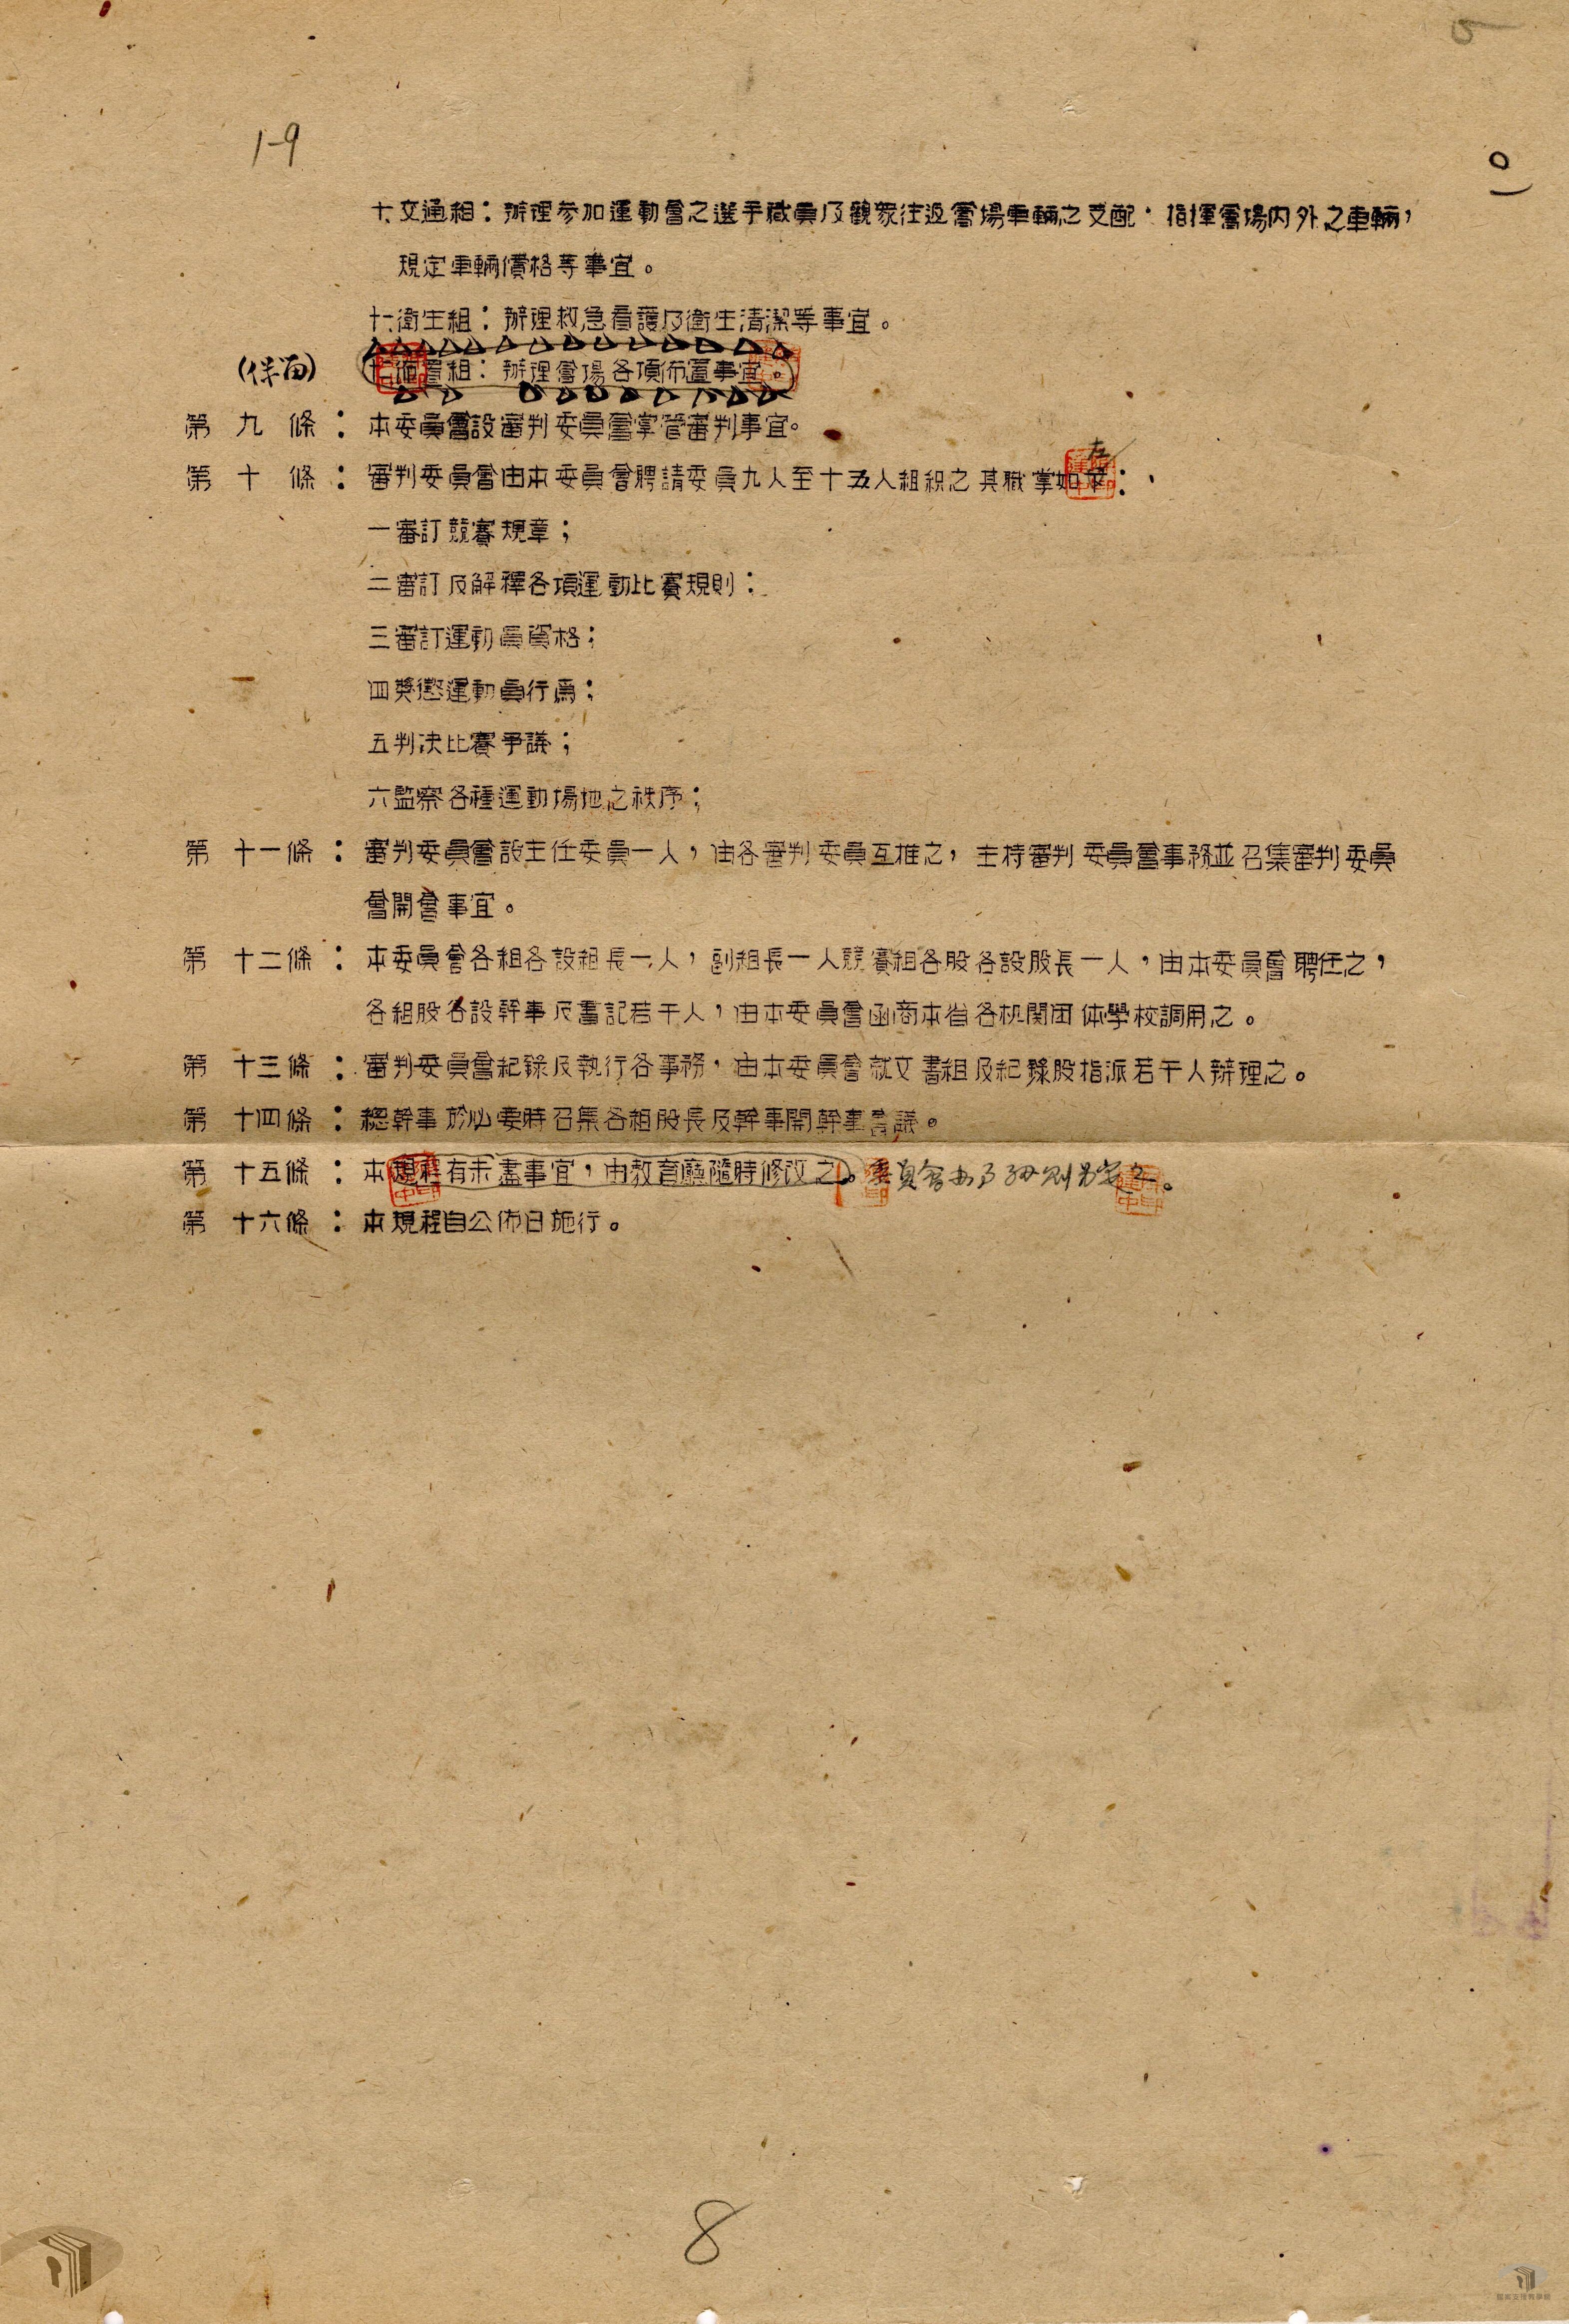 5
1-9
10
十、交通組：辦理參加運動會之選手職員及觀衆往返會場車輛之支配，指揮會場內外之車輛，
規定車輛價格等事宜。
十一、衛生組：辦理救急看護及衛生清潔等事宜。
(保留)
十二、佈置組：辦理會場各項佈置事宜。
第九條：本委員會設審判委員會掌管審判事宜。
左
第十條：審判委員會由本委員會聘請委員九人至十五人組織之其職掌如：
一審訂競賽規章；
二審訂及解釋各項運動比賽規則：
三審訂運動員資格；
四獎懲運動員行爲；
五判决比賽爭議；
六監察各種運動場地之秩序；
第十一條：審判委員會設主任委員一人，由各審判委員互推之，主持審判委員會事務並召集審判委員
會開會事宜。
第十二條：本委員會各組各設組長一人，副組長一人競賽組各股各設股長一人，由本委員會聘任之，
各組股各設幹事及書記若干人，由本委員會函商本省各机関团体學校調用之。
第十三條：審判委員會紀錄及執行各事務，由本委員會就文書組及紀錄股指派若干人辦理之。
第十四條：總幹事於必要時召集各組股長及幹事開幹事會議。
第十五條：本規程有未盡事宜，由教育廳隨時修改之。委員會办事細則另定之。
第十六條：本規程自公佈日施行。
8